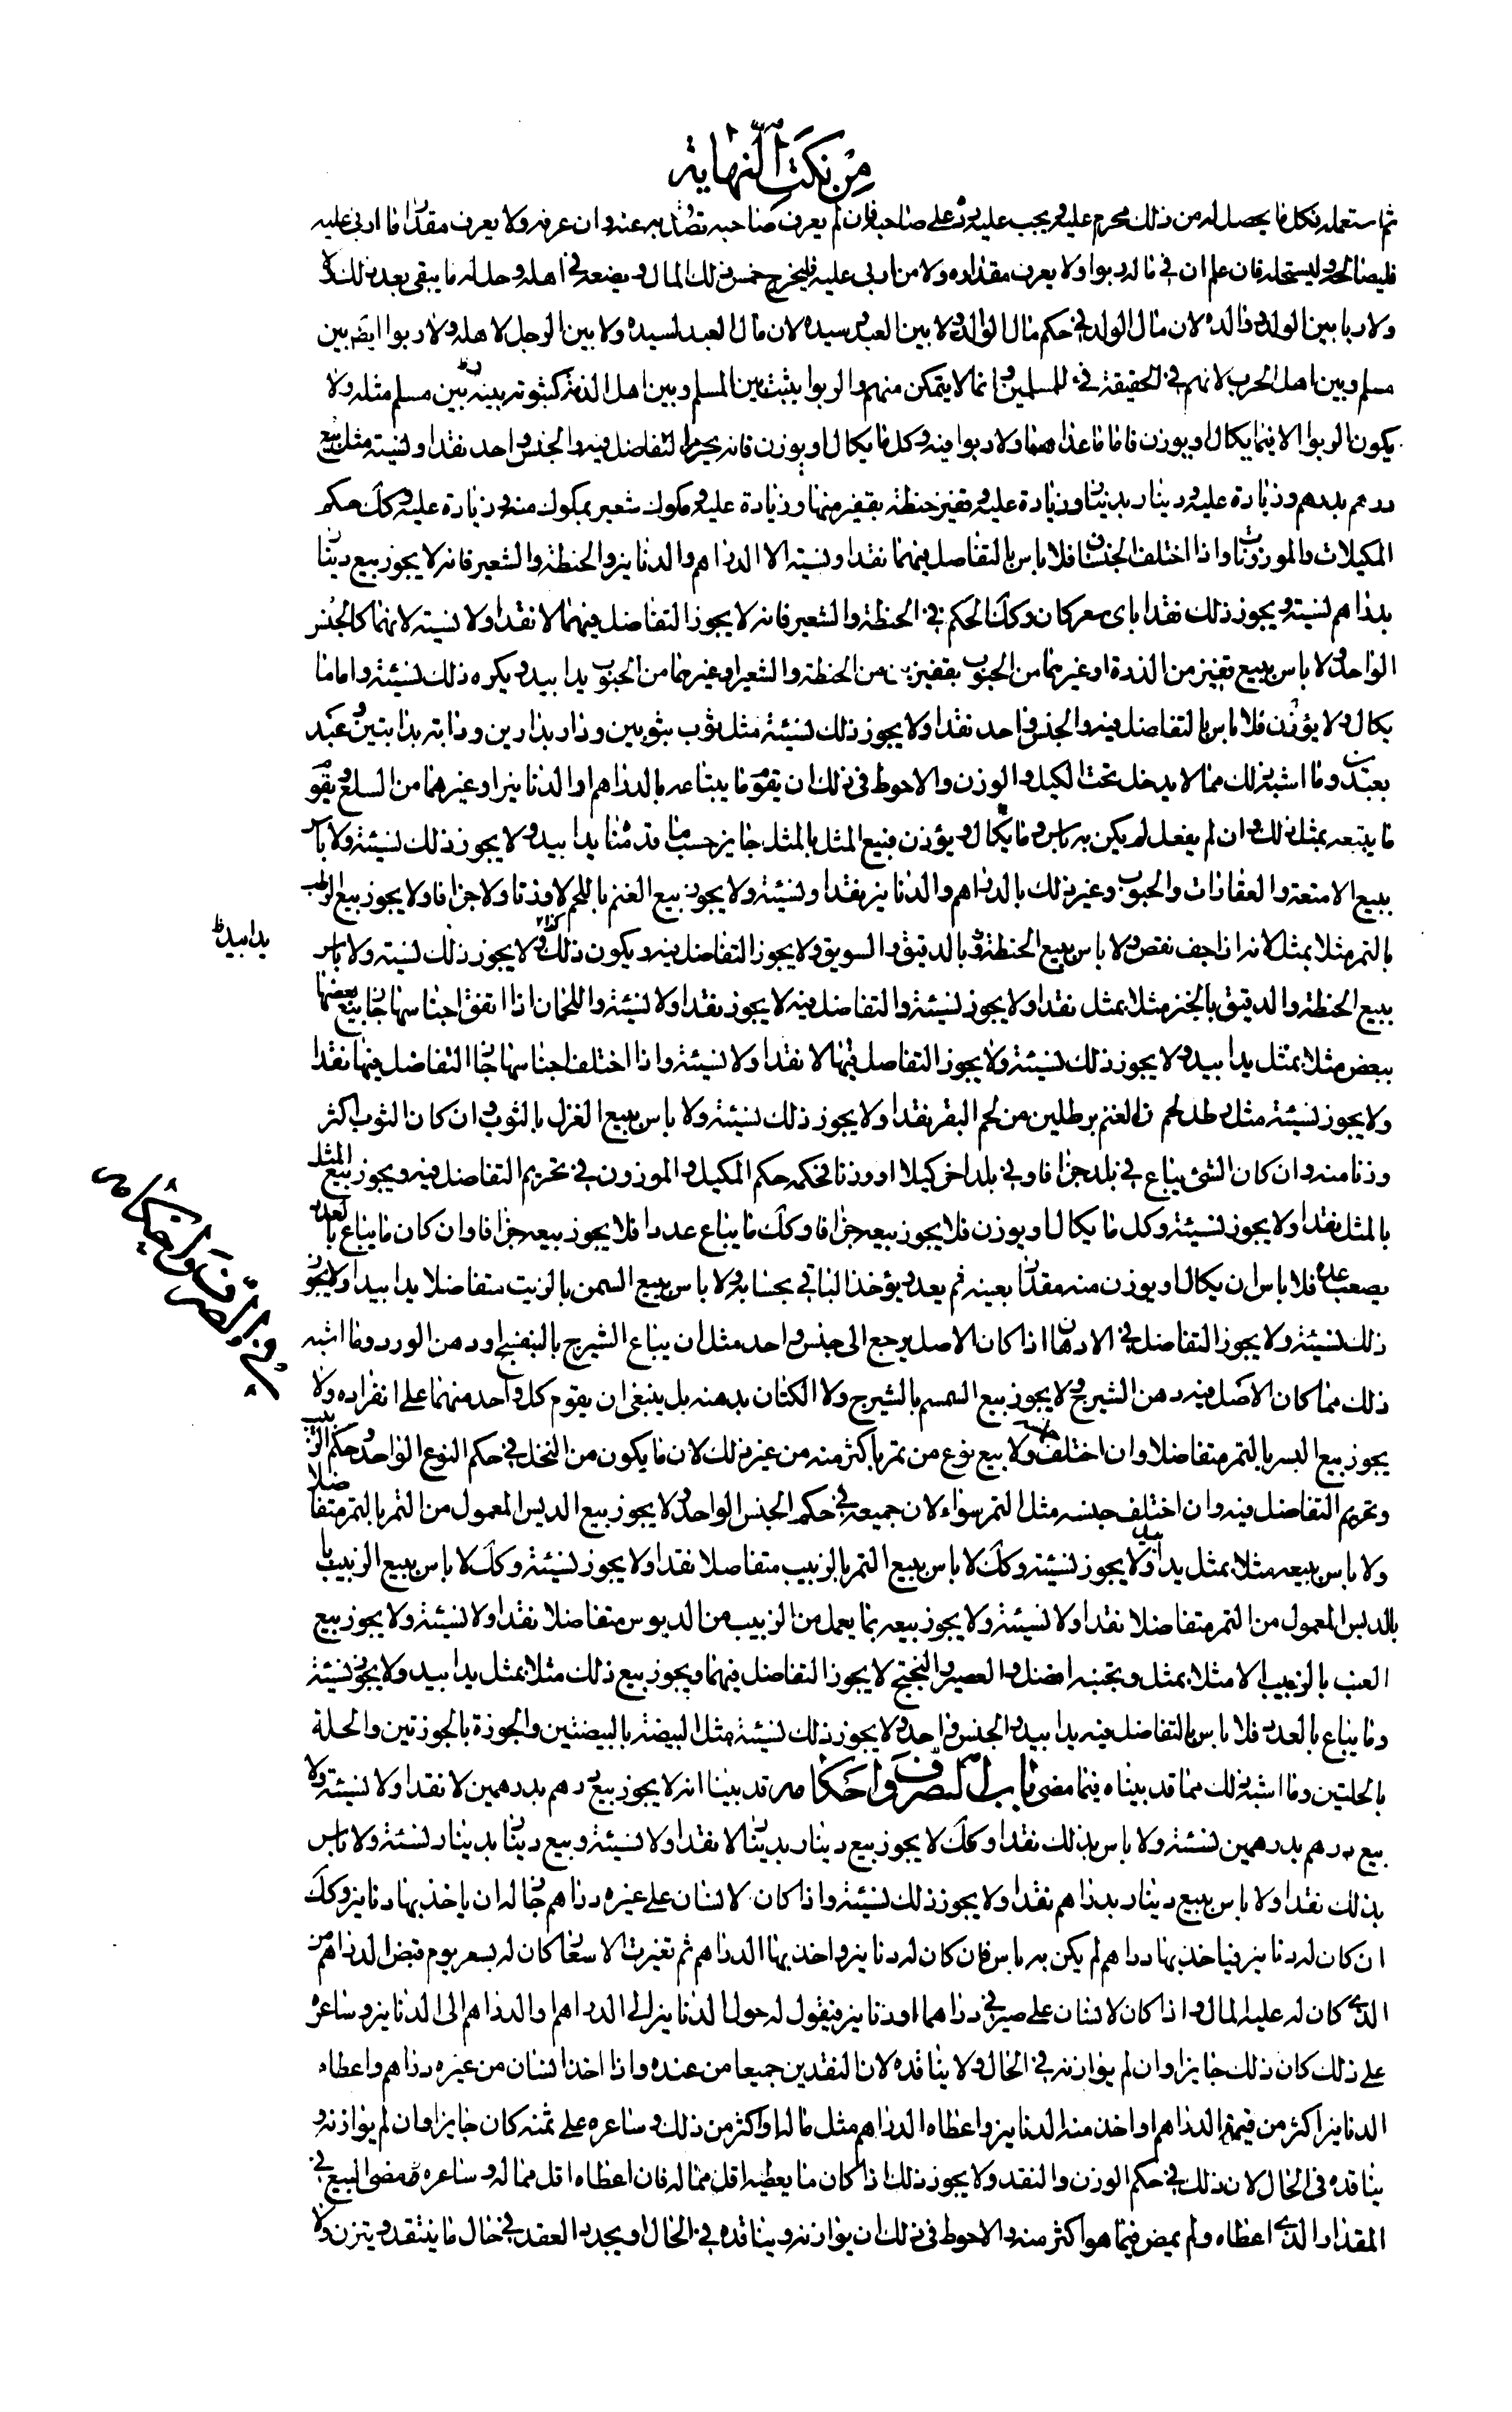 من نكت النهاية
ثم استعمله فكل ما يحصل له من ذلك محرم عليه ويجب عليه رده على صاحبه فان لم يعرف صاحبه تصدق به عنه وان عرفه ولا يعرف مقدار ما اربى عليه
فليصالحه وليستحله فان علم ان في ماله ربوا ولا يعرف مقداره ولا من اربى عليه فليخرج خمس ذلك المال ويضعه في اهله وحل له ما يبقى بعد ذلك
ولا ربا بين الولد ووالده لان مال الولد في حكم مال الوالد ولا بين العبد وسيده لان مال العبد لسيده ولا بين الرجل واهله ولا ربوا ايضا بين
مسلم وبين اهل الحرب لانهم في الحقيقة فيء للمسلمين وانما لا يتمكن منهم والربوا يثبت بين المسلم وبين اهل الذمة كثبوته بينه وبين مسلم مثله ولا
يكون الربوا الا فيما يكال او يوزن فاما ما عداهما ولا ربوا فيه وكل ما يكال او يوزن فانه يحرم التفاضل فيه والجنس واحد نقدا ونسية مثل بيع
درهم بدرهم وزيادة عليه ودينار بدينار وزيادة عليه وقفيز حنطة بقفيز منها وزيادة عليه ومكوك شعير بمكوك منه وزيادة عليه وكك حكم
المكيلات والموزونات واذا اختلف الجنسان فلا باس بالتفاضل فيهما نقدا ونسية الا الدراهم والدنانيز والحنطة والشعير فانه لا يجوز بيع دينار
بدراهم نسية ويجوز ذلك نقدا باى سعر كان وكك الحكم في الحنطة والشعير فانه لا يجوز التفاضل فيهما لا نقدا ولا نسية لانهما كالجنس
الواحد ولا باس ببيع قفيز من الذرة او غيرهما من الحبوب بقفيزين من الحنطة والشعير او غيرهما من الحبوب يدا بيد ويكره ذلك نسيئة واما ما
يكال ولا يوزن فلا باس بالتفاضل فيه والجنس واحد نقدا ولا يجوز ذلك نسيئة مثل ثوب بثوبين ودار بدارين ودابة بدابتين وعبد
بعبدين وما اشبه ذلك مما لا يدخل تحت الكيل والوزن والاحوط في ذلك ان يقوم ما يبتاعه بالدراهم او الدنانير او غيرهما من السلع ويقوم
ما يبيعه بمثل ذلك وان لم يفعل لم يكن به باس وما يكال ويوزن فبيع المثل بالمثل جايز حسب ما قدمناه يدا بيد ولا يجوز ذلك نسيئة ولا باس
ببيع الامتعة والعقارات والحبوب وغير ذلك بالدراهم والدنانيز نقدا ونسيئة ولا يجوز بيع الغنم باللحم لا وزنا ولا جزافا ولا يجوز بيع الرطب
بالتمر مثلا بمثل لانه اذا جف نقص ولا باس ببيع الحنطة بالدقيق والسويق ولا يجوز التفاضل فيه ويكون ذلك نقدا ولا يجوز ذلك نسية ولا باس
يدا بيد
ببيع الحنطة والدقيق بالخبز مثلا بمثل نقدا ولا يجوز نسيئة والتفاضل فيه لا يجوز نقدا ولا نسيئة واللحمان اذا اتفق اجناسها جاز بيع بعضها
ببعض مثلا بمثل يدا بيد ولا يجوز ذلك نسيئة ولا يجوز التفاضل فيها لا نقدا ولا نسيئة واذا اختلف اجناسها جاز التفاضل فيها نقدا
ولا يجوز نسيئة مثل رطل لحم الغنم برطلين من لحم البقر نقدا ولا يجوز ذلك نسيئة ولا باس ببيع الغزل بالثوب وان كان الثوب اكثر
وزنا منه وان كان الشئ يباع في بلد جزافا وفي بلد اخر كيلا او وزنا فحكمه حكم المكيل والموزون في تحريم التفاضل فيه ويجوز بيع المثل
بالمثل نقدا ولا يجوز نسيئة وكل ما يكال او يوزن فلا يجوز بيعه جزافا وكك ما يباع عددا فلا يجوز بيعه جزافا وان كان ما يباع بالعدد
يصعب عده فلا باس ان يكال او يوزن منه مقدار بعينه ثم يعد ويؤخذ الباقي بحسابه ولا باس ببيع السمن بالزيت متفاضلا يدا بيد ولا يجوز
ذلك نسيئة ولا يجوز التفاضل في الادهان اذا كان الاصل يرجع الى جنس واحد مثل ان يباع الشيرج بالبنفسج او دهن الورد وما اشبه
ذلك مما كان الاصل فيه دهن الشيرج ولا يجوز بيع السمسم بالشيرج ولا الكتان بدهنه بل ينبغى ان يقوم كل واحد منهما على انفراده ولا
يجوز بيع البسر بالتمر متفاضلا وان اختلف جنسه ولا بيع نوع من تمر باكثر منه من غير ذلك لان ما يكون من النخل في حكم النوع الواحد وحكم الزبيب
وتحريم التفاضل فيه وان اختلف جنسه مثل التمر سواء لان جميعه في حكم الجنس الواحد ولا يجوز بيع الدبس المعمول من التمر بالتمر متفاضلا
ولا باس ببيعه مثلا بمثل يدا بيد ولا يجوز نسيئة وكك لا باس ببيع التمر بالزبيب متفاضلا نقدا ولا يجوز نسيئة وكك لا باس ببيع الزبيب
بالدبس المعمول من التمر متفاضلا نقدا ولا نسيئة ولا يجوز بيعه بما يعمل من الزبيب من الدبوس متفاضلا نقدا ولا نسيئة ولا يجوز بيع
العنب بالزبيب الا مثلا بمثل وتجنبه افضل والعصير والبختج لا يجوز التفاضل فيهما ويجوز بيع ذلك مثلا بمثل يدا بيد ولا يجوز نسيئة
وما يباع بالعدد فلا باس بالتفاضل فيه يدا بيد والجنس واحد ولا يجوز ذلك نسيئة مثل البيضة بالبيضتين والجوزة بالجوزتين والحلة
بالحلتين وما اشبه ذلك مما قد بيناه فيما مضى باب الصرف واحكامه قد بينا انه لا يجوز بيع درهم بدرهمين لا نقدا ولا نسيئة ولا
بيع درهم بدرهمين نسئة ولا باس بذلك نقدا وكك لا يجوز بيع دينار بدينارين لا نقدا ولا نسيئة وبيع دينار بدينار نسئة ولا باس
بذلك نقدا ولا باس ببيع دينار بدراهم نقدا ولا يجوز ذلك نسيئة واذا كان لانسان على غيره دراهم جاز له ان ياخذ بها دنانيز وكك
ان كان له دنانيز فياخذ بها دراهم لم يكن به باس فان كان له دنانيز واخذ بها الدراهم ثم تغيرت الاسعار كان له بسعر يوم قبض الدراهم من
الذي كان له عليه المال واذا كان لانسان على صيرفي دراهم او دنانيز فيقول له حول الدنانيز الى الدراهم والدراهم الى الدنانيز وساعره
على ذلك كان ذلك جايزا وان لم يوازنه في الحال ولا يناقده لان النقدين جميعا من عنده واذا اخذ انسان من غيره دراهم واعطاه
الدنانيز اكثر من قيمة الدراهم او اخذ منه الدنانيز واعطاه الدراهم مثل ماله او اكثر من ذلك وساعره على ثمنه كان جايزا وان لم يوازنه و
يناقده في الحال لان ذلك في حكم الوزن والنقد ولا يجوز ذلك اذا كان ما يعطيه اقل مما له فان اعطاه اقل مما له وساعره مضى البيع في
المقدار الذي اعطاه ولم يمض فيما هو اكثر منه والاحوط في ذلك ان يوازنه ويناقده في الحال او يجدد العقد في حال ما ينتقد ويتزن ولا
في الصرف واحكامه